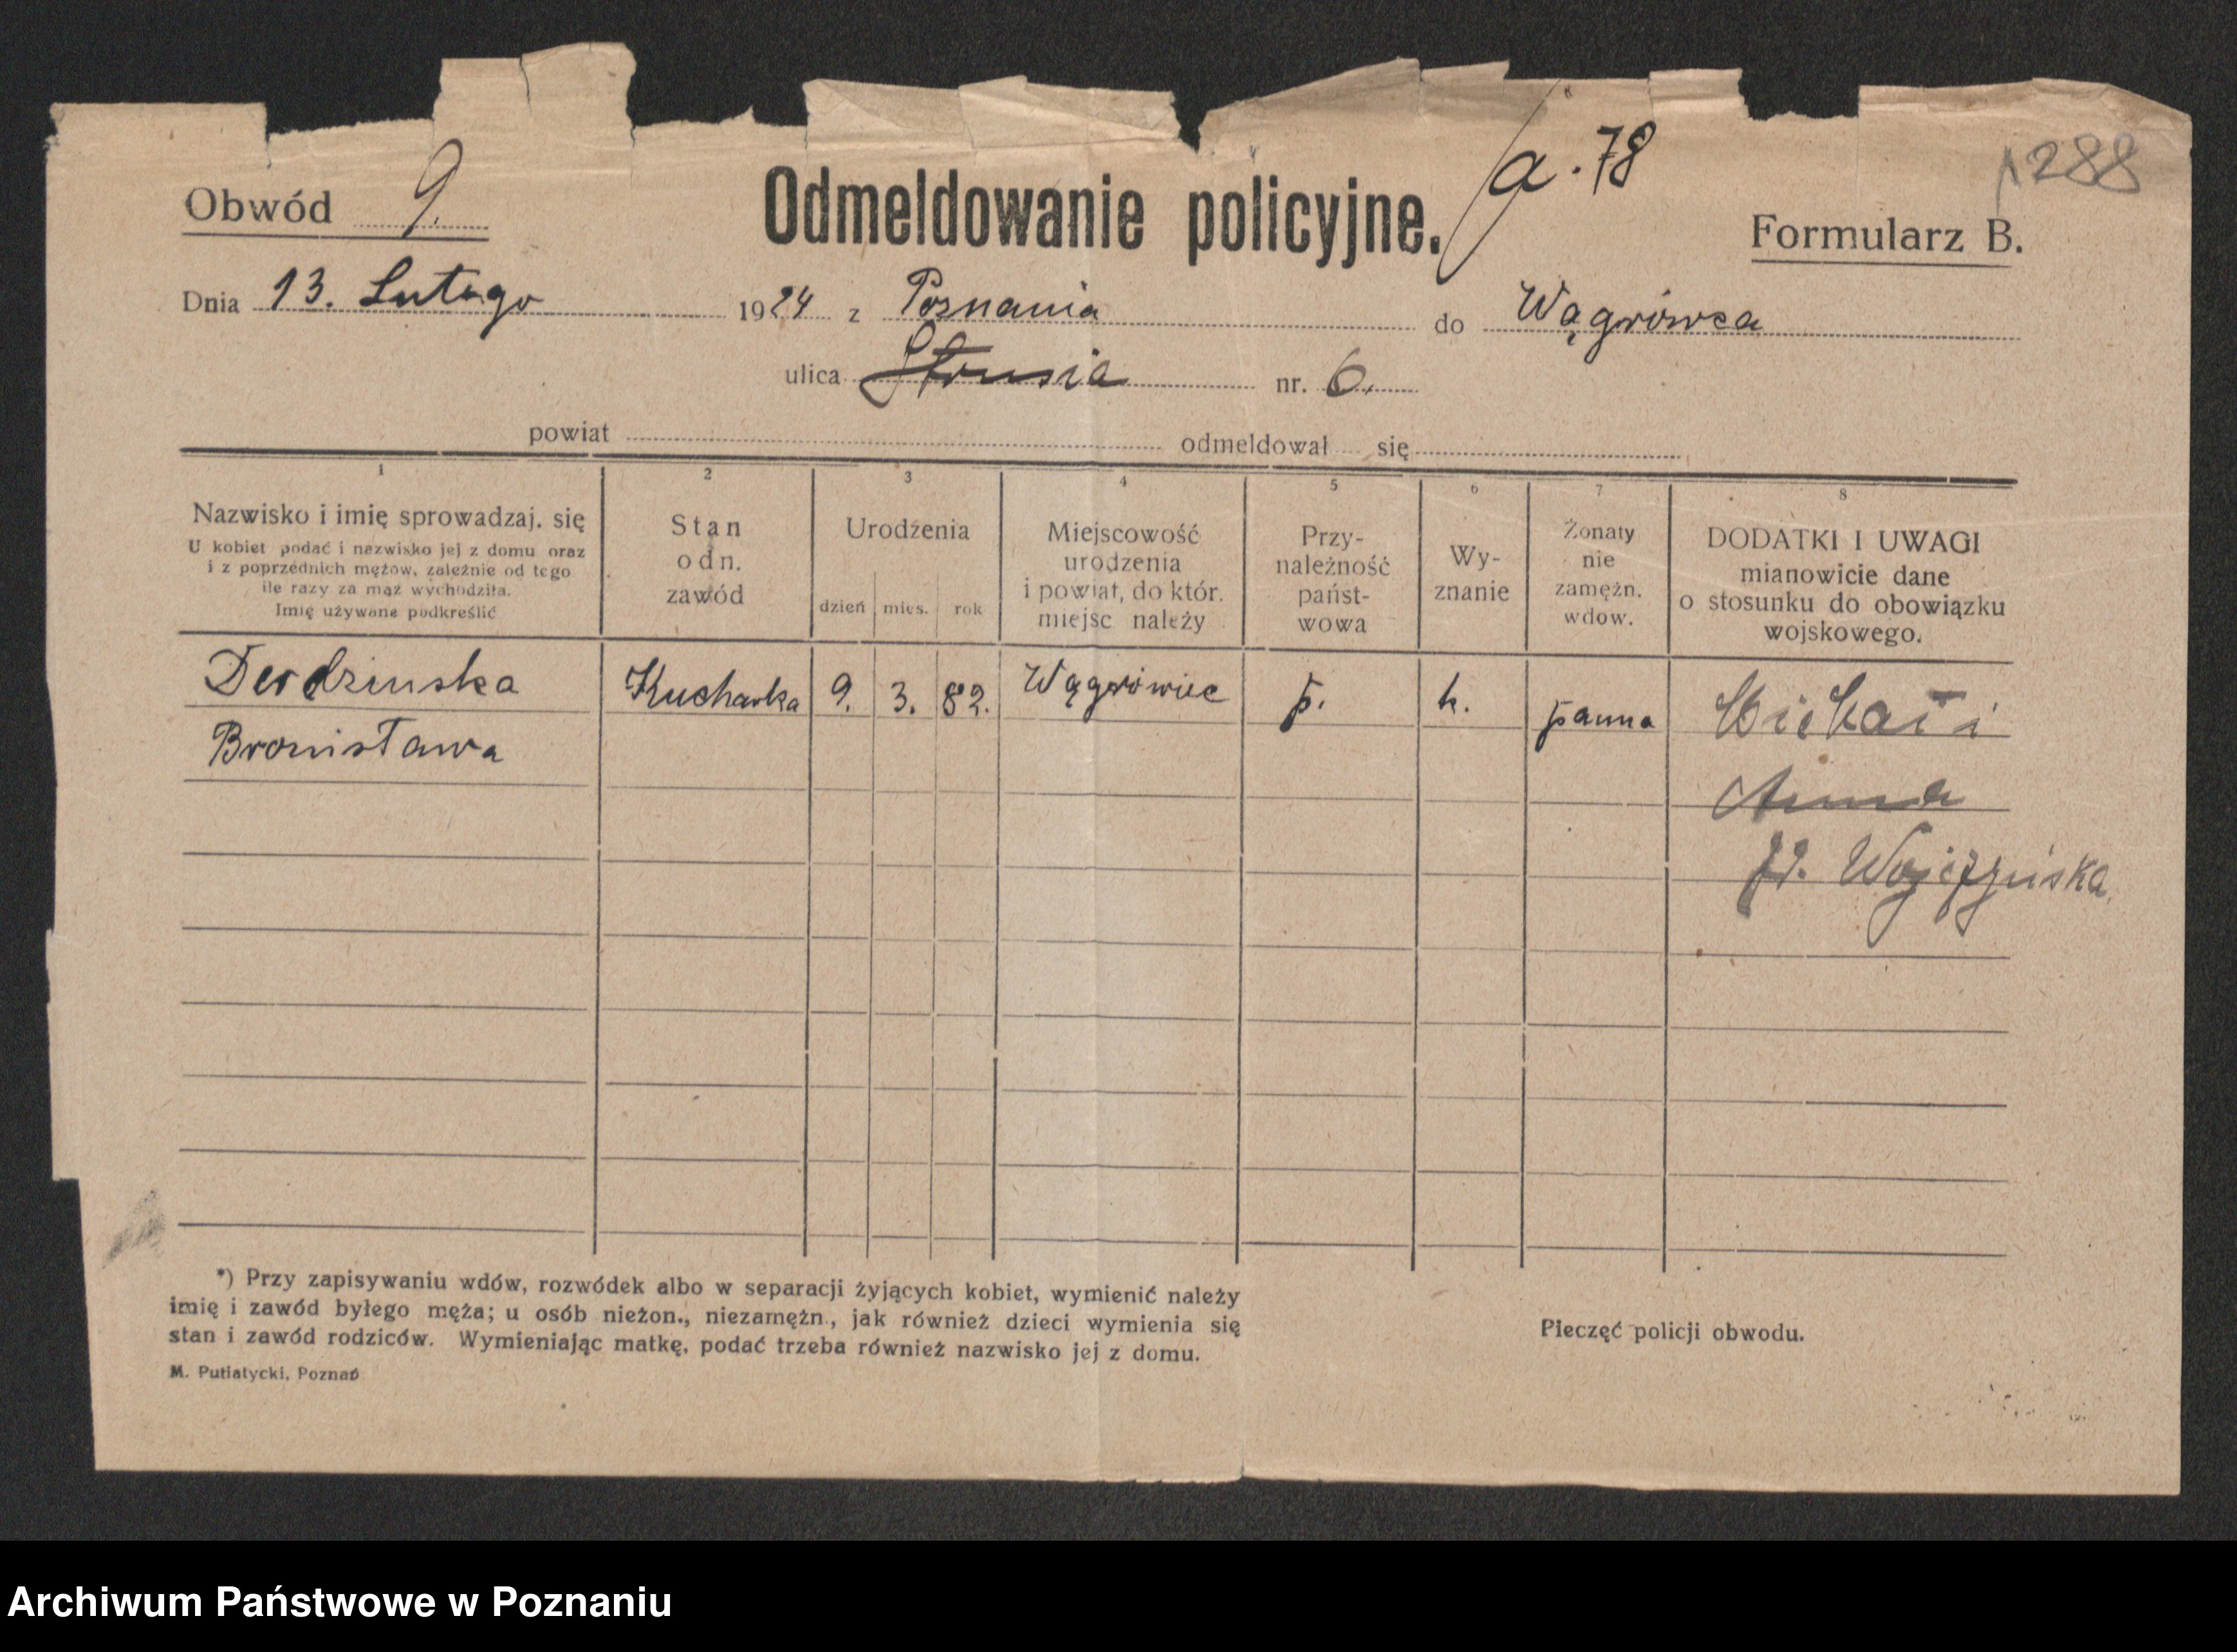 Obwód 9.
Odmeldowanie policyjne.
a. 78
1288
Formularz B.
Dnia 13. Lutego 1924 z Poznania do Wągrówca
ulica Strusia nr. 6.
powiat odmeldował się
1 2 3 4 5 6 7 8
Nazwisko i imię sprowadzaj. się
U kobiet podać i nazwisko jej z domu oraz
i z poprzednich mężow, zależnie od tego
ile razy za mąż wychodziła.
Imię używane podkreślić
Stan
odn.
zawód
Urodzenia
dzień mies. rok
Miejscowość
urodzenia
i powiat, do któr.
miejsc należy
Przy-
należność
państ-
wowa
Wy-
znanie
Żonaty
nie
zamężn.
wdow.
DODATKI I UWAGI
mianowicie dane
o stosunku do obowiązku
wojskowego.
Derdzinska Kucharka 9. 3. 82. Wągrówiec p. k. panna Michał i
Bronisława
Anna
zd. Wojczyńska
*) Przy zapisywaniu wdów, rozwódek albo w separacji żyjących kobiet, wymienić należy
imię i zawód byłego męża; u osób nieżon., niezamężn., jak również dzieci wymienia się
stan i zawód rodziców. Wymieniając matkę, podać trzeba również nazwisko jej z domu.
M. Putiatycki, Poznań
Pieczęć policji obwodu.
Archiwum Państwowe w Poznaniu